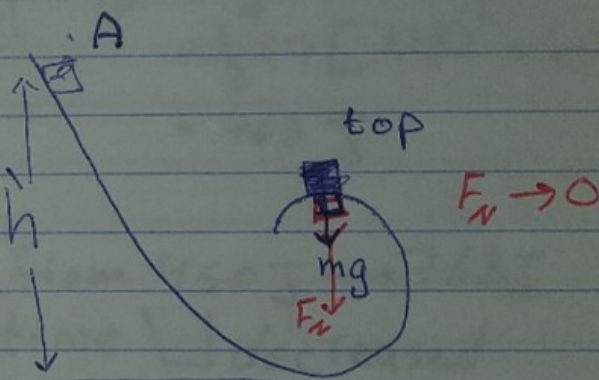 A
m
top
F_N → 0
h
mg
F_N